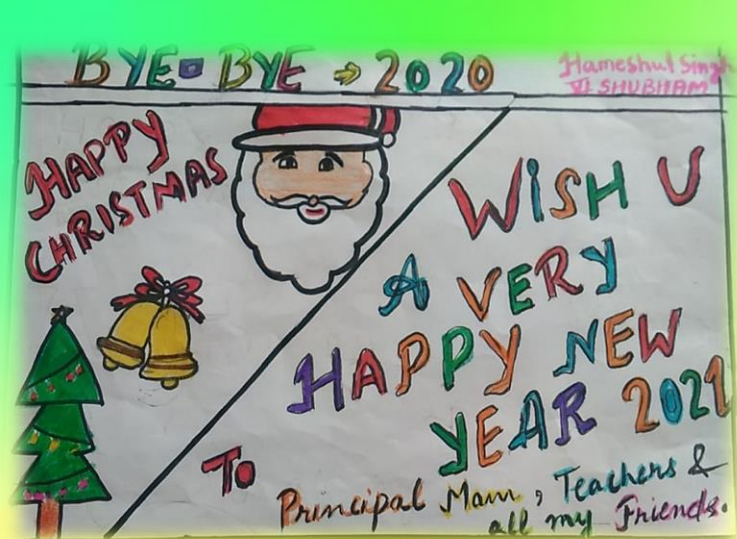 BYE-BYE → 2020
Hameshul Singh
VI SHUBHAM
HAPPY
CHRISTMAS
WISH U
A VERY
HAPPY NEW
YEAR 2021
To
Principal Mam, Teachers &
all my Friends.